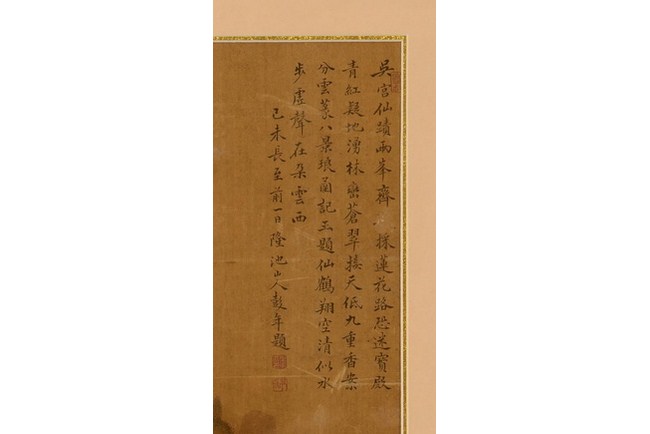 吳宮仙蹟兩峯齊採蓮花路恐迷寶殿
青紅疑地湧林巒蒼翠接天低九重香案
分雲篆八景琅函記玉題仙鶴翔空清似水
步虛聲在朵雲西
己未長至前一日隆池山人彭年題